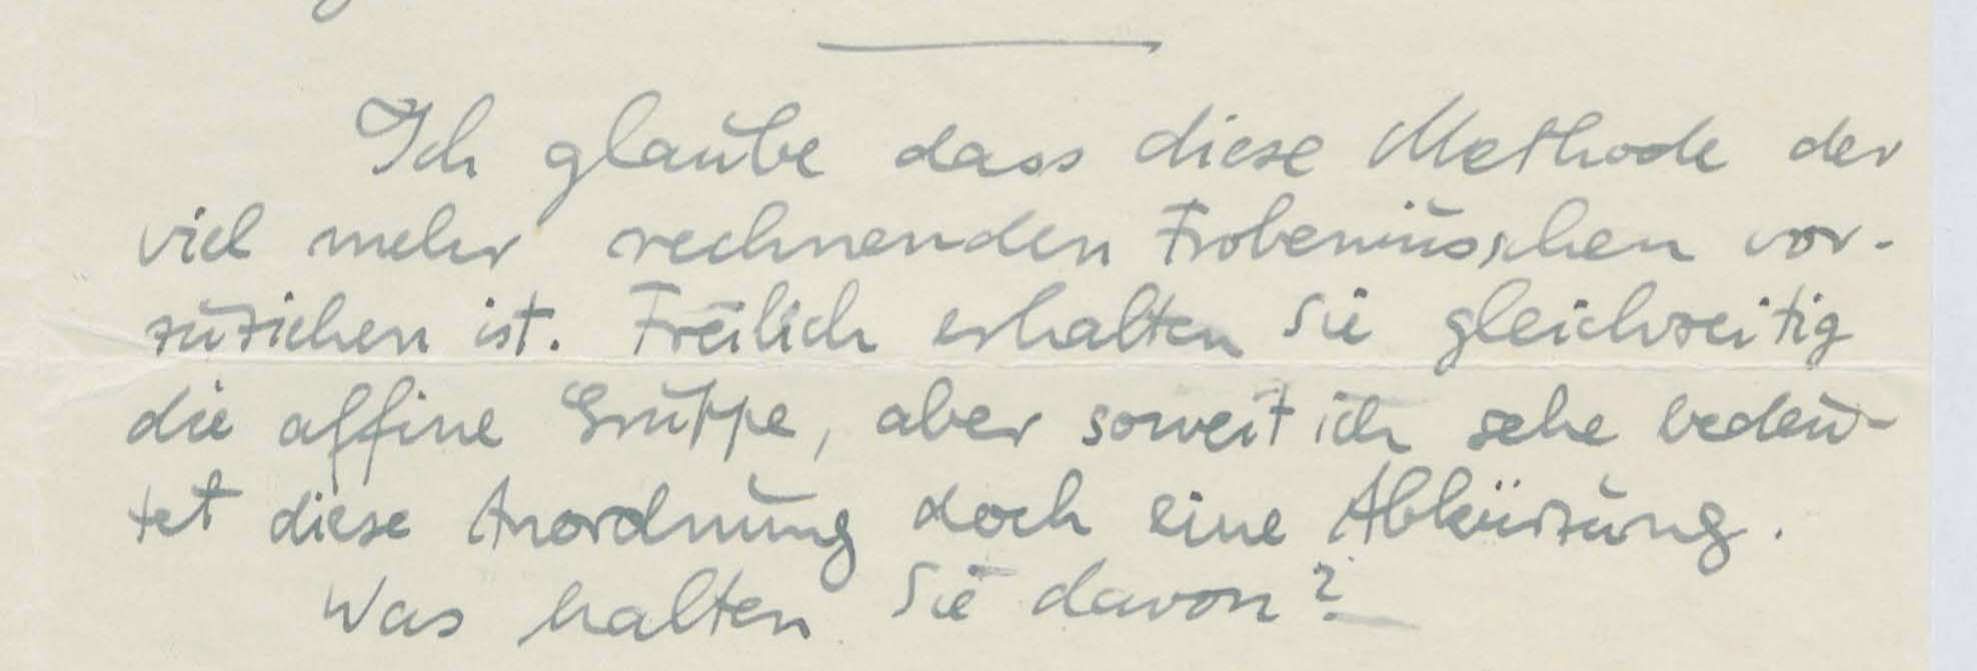 Ich glaube dass diese Methode der
viel mehr rechnenden Frobeniusschen vor-
zuziehen ist. Freilich erhalten Sie gleichzeitig
die affine Gruppe, aber soweit ich sehe bedeu-
tet diese Anordnung doch eine Abkürzung.
Was halten Sie davon?